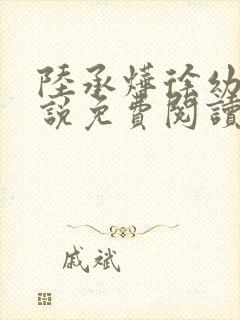 陸承燁徐幼
說免費閱讀
戚斌